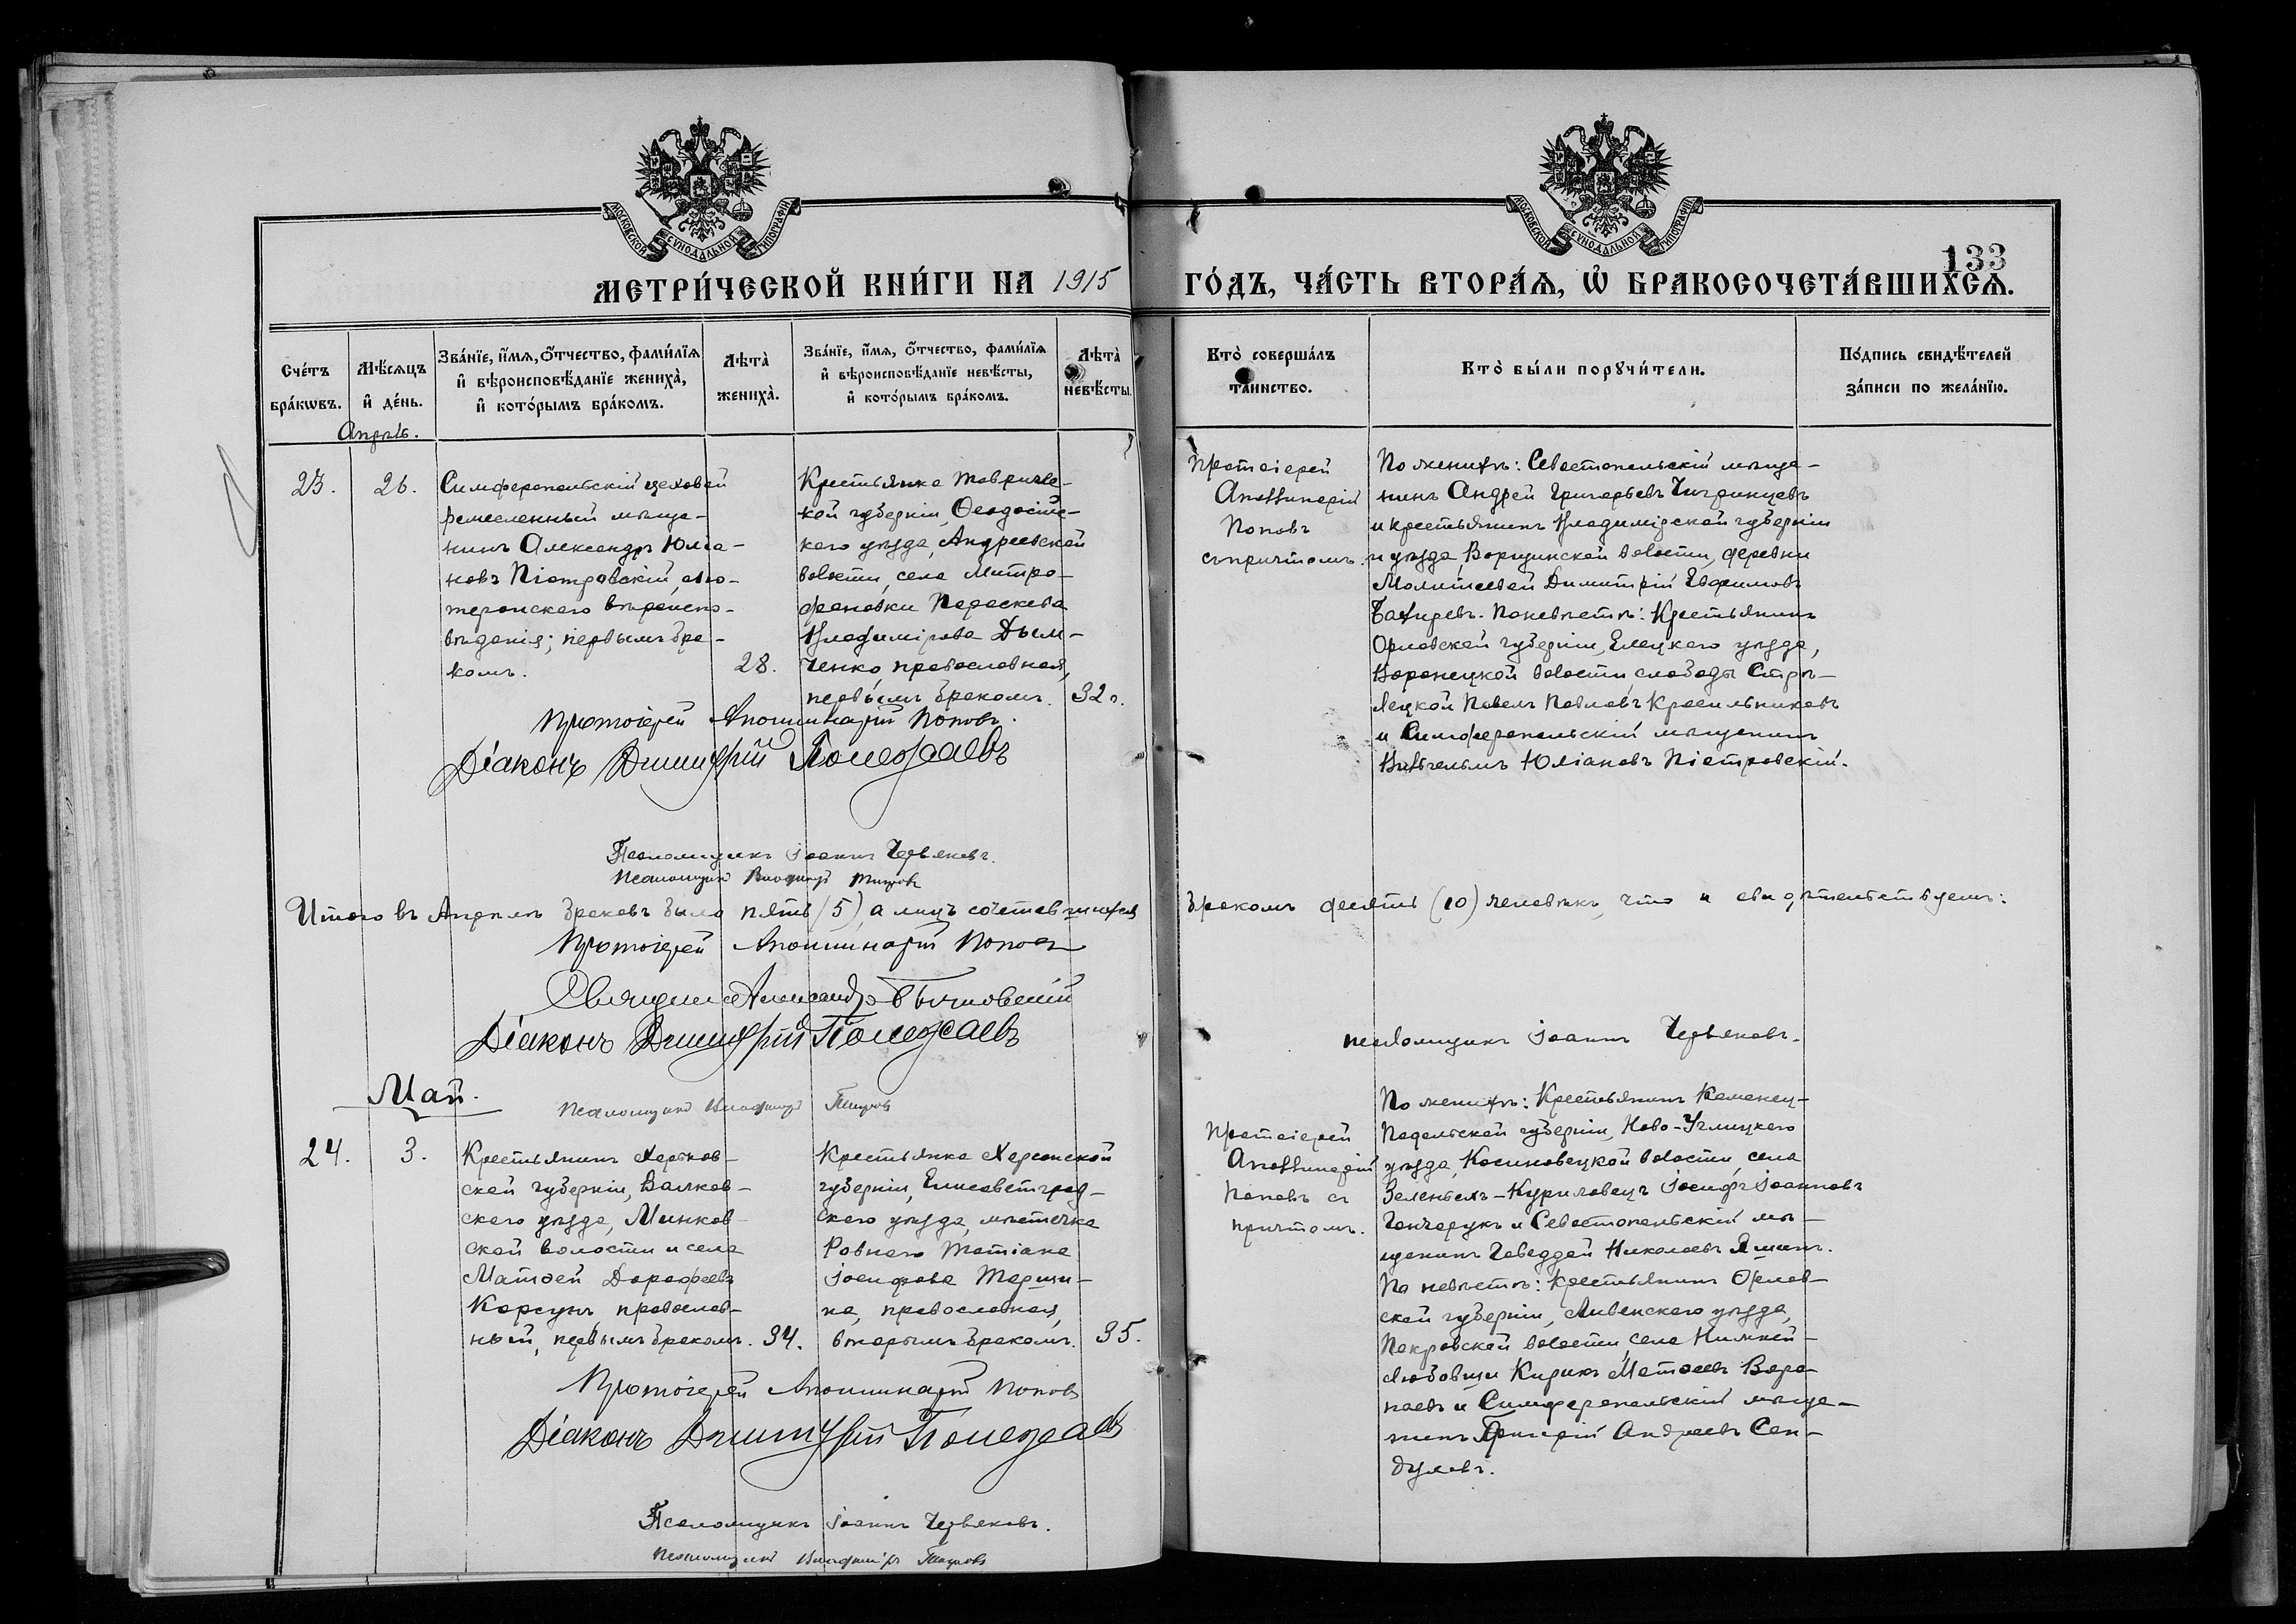 МОСКОВСКОЙ СѴНОДАЛЬНОЙ ТИПОГРАФІИ
МОСКОВСКОЙ СѴНОДАЛЬНОЙ ТИПОГРАФІИ
133
МЕТРИ́ЧЕСКОЙ КНИ́ГИ НА 1915 ГО́ДЪ, ЧА́СТЬ ВТОРА́Ѧ, Ѡ҆ БРАКОСОЧЕТА́ВШИХСѦ.
Сче́тъ бра́кѡвъ.
Мѣ́сѧцъ и҆ де́нь.
Зва́нїе, и҆́мѧ, ѻ҆́тчество, фами́лїѧ и҆ вѣроисповѣ́данїе жениха̀, и҆ кото́рымъ бра́комъ.
Лѣта̀ жениха̀.
Зва́нїе, и҆́мѧ, ѻ҆́тчество, фами́лїѧ и҆ вѣроисповѣ́данїе невѣ́сты, и҆ кото́рымъ бра́комъ.
Лѣта̀ невѣ́сты.
Кто̀ соверша́лъ та́инство.
Кто̀ бы́ли порꙋчи́тели.
По́дпись свидѣ́телей за́писи по жела́нїю.
Апрѣль.
23.
26.
Симферопольскій цеховой
ремесленный мѣща-
нинъ Александръ Юліа-
новъ Піотровскій, лю-
теранскаго вѣроиспо-
вѣданія; первымъ бра-
комъ.
28.
Крестьянка Тавриче-
кой губерніи, Ѳеодосійс-
каго уѣзда, Андреевской
волости, села Митро-
фановки Параскева
Владимірова Дьям-
ченко, православная,
первымъ бракомъ.
32 г.
Протоіерей
Аполлинарій
Поповъ
съ причтомъ.
По женихѣ: Севастопольскій мѣща-
нинъ Андрей Григорьевъ Чигринцевъ
и крестьянинъ Владимірской губерніи
и уѣзда, Ворщинской волости, деревни
Димитрій Евфимовъ
Бахиревъ. По невѣстѣ: Крестьянинъ
Орловской губерніи, Елецкаго уѣзда,
Воронецкой волости слободы Стрѣ-
лецкой Павелъ Павловъ Красильниковъ
и Симферопольскій мѣщанинъ
Вильгельмъ Юліановъ Піотровскій.
Протоіерей Аполлинарій Поповъ.
Діаконъ Димитрій Полежаевъ
Псаломщикъ Іоаннъ Червяковъ.
Псаломщикъ Владиміръ
Итого въ Апрѣлѣ браковъ было пять (5), а лицъ сочетавшихся бракомъ десять (10) человѣкъ, что и свидѣтельствуемъ:
Протоіерей Аполлинарій Поповъ
Священникъ Александръ
Діаконъ Димитрій Полежаевъ
псаломщикъ Іоаннъ Червяковъ.
Псаломщикъ Владиміръ
Май.
24.
3.
Крестьянинъ Харьков-
ской губерніи, Валков-
скаго уѣзда, Минков-
ской волости и села
Матѳей Дороѳеевъ
Корсунъ, православ-
ный, первымъ бракомъ.
34.
Крестьянка Херсонской
губерніи, Елисаветград-
скаго уѣзда, мѣстечка
Ровнаго Татіана
Іосифова Марши-
на, православная,
вторымъ бракомъ.
35.
Протоіерей
Аполлинарій
Поповъ съ
причтомъ.
По женихѣ: Крестьянинъ Каменец-
Подольской губерніи, Ново-Ушицкаго
уѣзда, Косиковецкой волости, села
Зеленыхъ-Куриловецъ Іосифъ Іоанновъ
Гончарукъ и Севастопольскій мѣ-
щанинъ Ѳаддей Николаевъ Яшинъ.
По невѣстѣ: Крестьянинъ Орлов-
ской губерніи, Ливенскаго уѣзда,
Покровской волости, села Нижней-
Любовши Кирикъ Матѳеевъ Воро-
паевъ и Симферопольскій мѣща-
нинъ Григорій Андреевъ Сен-
дуловъ.
Протоіерей Аполлинарій Поповъ
Діаконъ Димитрій Полежаевъ
Псаломщикъ Іоаннъ Червяковъ.
Псаломщикъ Владиміръ